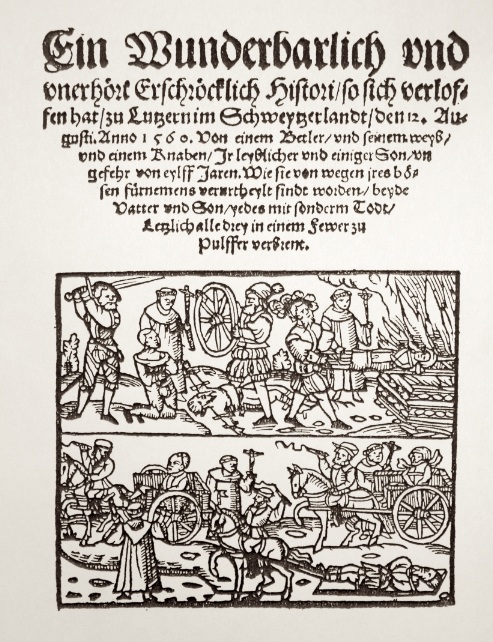 Ein Wunderbarlich vnd
vnerhört Erschröcklich Histori/so sich verlof-
fen hat/zu Lutzern im Schweytzerlandt/den 12. Au-
gusti. Anno 1560. Von einem Betler/vnd seinem weyb/
vnd einem Knaben/Ir leyblicher vnd einiger Son/vn
gefehr von eylff Jaren. Wie sie von wegen jres bö-
sen fürnemens verurtheylt sindt worden/beyde
Vatter vnd Son/yedes mit sonderm Todt/
Letzlich alle drey in einem Fewer zu
Pulffer verbrent.